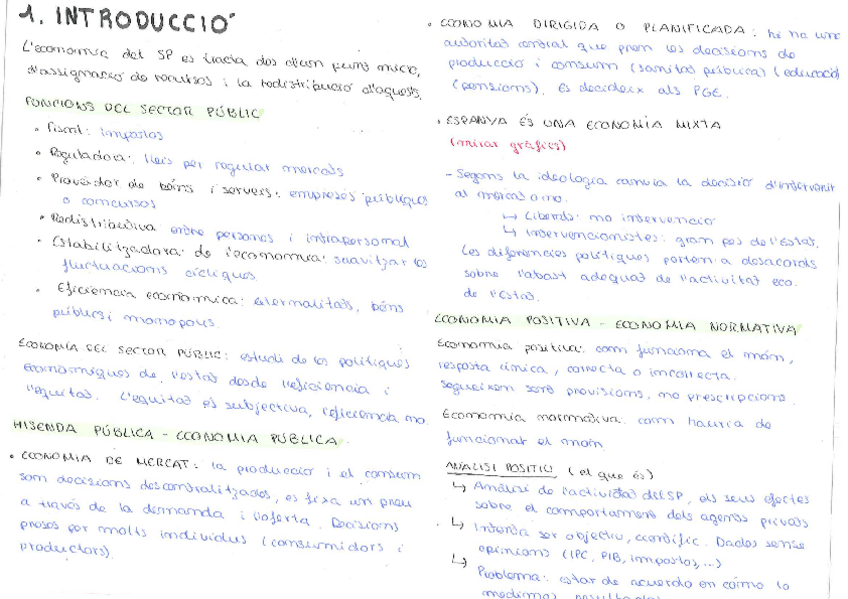 1. INTRODUCCIÓ
L'economia del SP es tracta des d'un punt micro,
d'assignació de recursos i la redistribució d'aquests.
FUNCIONS DEL SECTOR PÚBLIC
• Fiscal: impostos
• Reguladora: lleis per regular mercats
• Proveïdor de béns i serveis: empreses públiques
o concursos
• Redistributiva entre persones i intrapersonal
• Estabilitzadora de l'economia: suavitzar les
fluctuacions cícliques.
• Eficiencia econòmica: externalitats, béns
públics i monopolis.
ECONOMIA DEL SECTOR PÚBLIC: estudi de les polítiques
econòmiques de l'estat desde l'eficiència i
l'equitat. L'equitat es subjectiva, l'eficiència no.
HISENDA PÚBLICA - ECONOMIA PÚBLICA
• ECONOMIA DE MERCAT: la producció i el consum
són decisions descentralitzades, es fixa un preu
a través de la demanda i l'oferta. Decisions
preses per molts individus (consumidors i
productors).
• ECONOMIA DIRIGIDA O PLANIFICADA: hi ha una
autoritat central que pren les decisions de
producció i consum (sanitat pública) (educació)
(pensions). Es decideix als PGE.
• ESPANYA ÉS UNA ECONOMIA MIXTA
(mirar gràfics)
- Segons la ideologia canvia la decisió d'intervenir
al mercat o no.
↳ Liberals: no intervenció
↳ Intervencionistes: gran pes de l'Estat.
Les diferències polítiques porten a desacords
sobre l'abast adequat de l'activitat eco.
de l'Estat.
ECONOMIA POSITIVA - ECONOMIA NORMATIVA
Economia positiva: com funciona el món,
resposta única, correcta o incorrecta.
Segueixen sent previsions, no prescripcions.
Economia normativa: com hauria de
funcionar el món
ANÀLISI POSITIU (el que és)
↳ Anàlisi de l'activitat del SP, els seus efectes
sobre el comportament dels agents privats
↳ Intenta ser objectiu, científic. Dades sense
opinions (IPC, PIB, impostos,...)
↳ Problema: estar de acuerdo en cómo lo
medimos